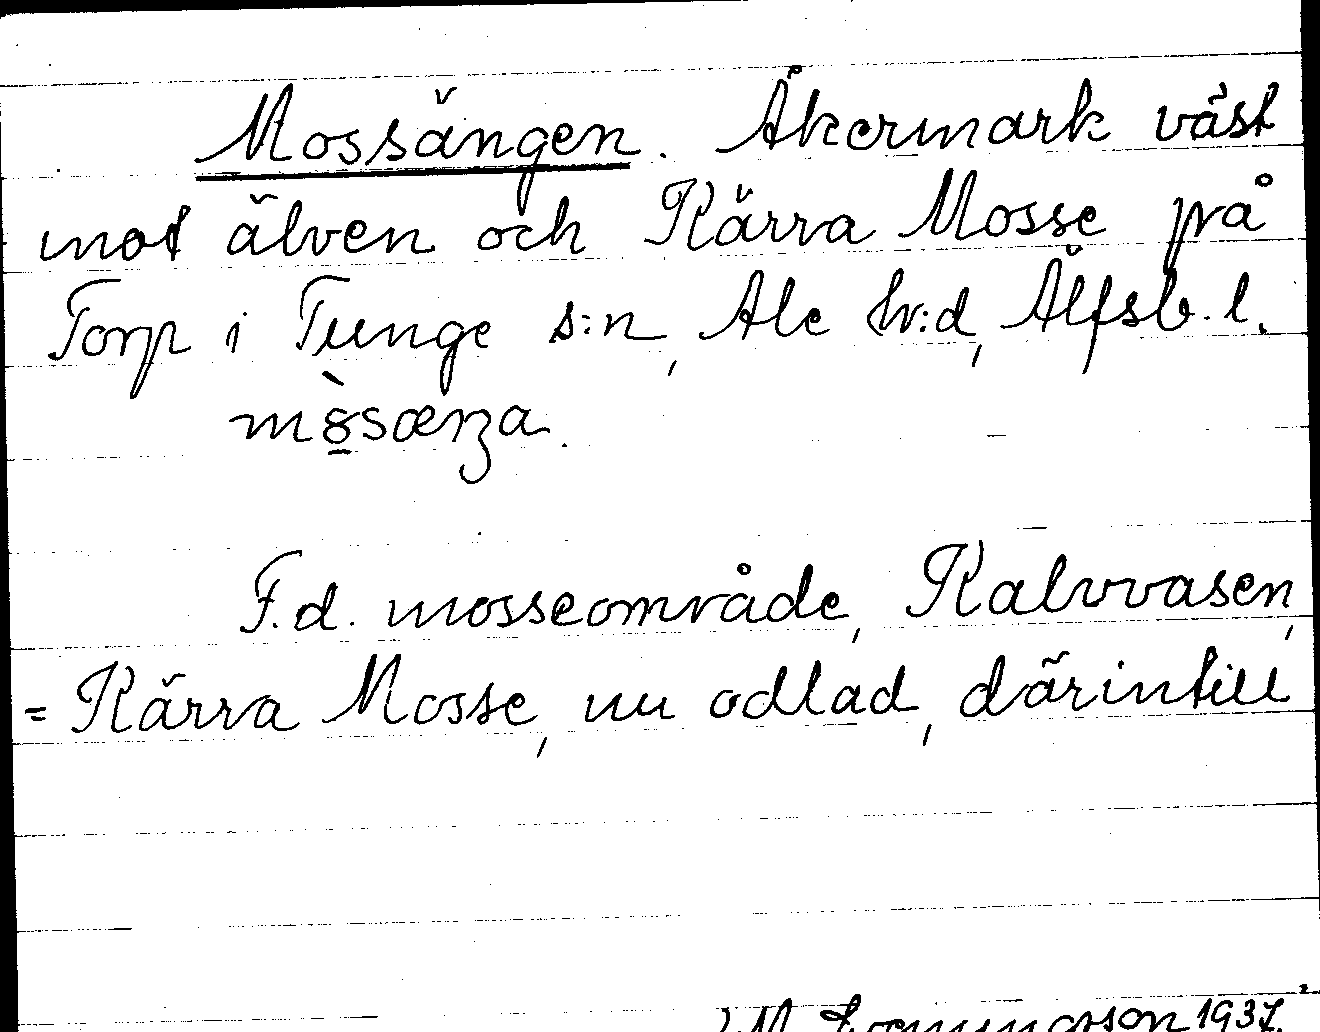 Mossängen. Åkermark väst
mot älven och Kärra Mosse på
Torp i Tunge s:n, Ale hd, Älfsb. l.
F.d. mosseområde, Kalvvasen,
= Kärra Mosse, nu odlad, därintill
1937.